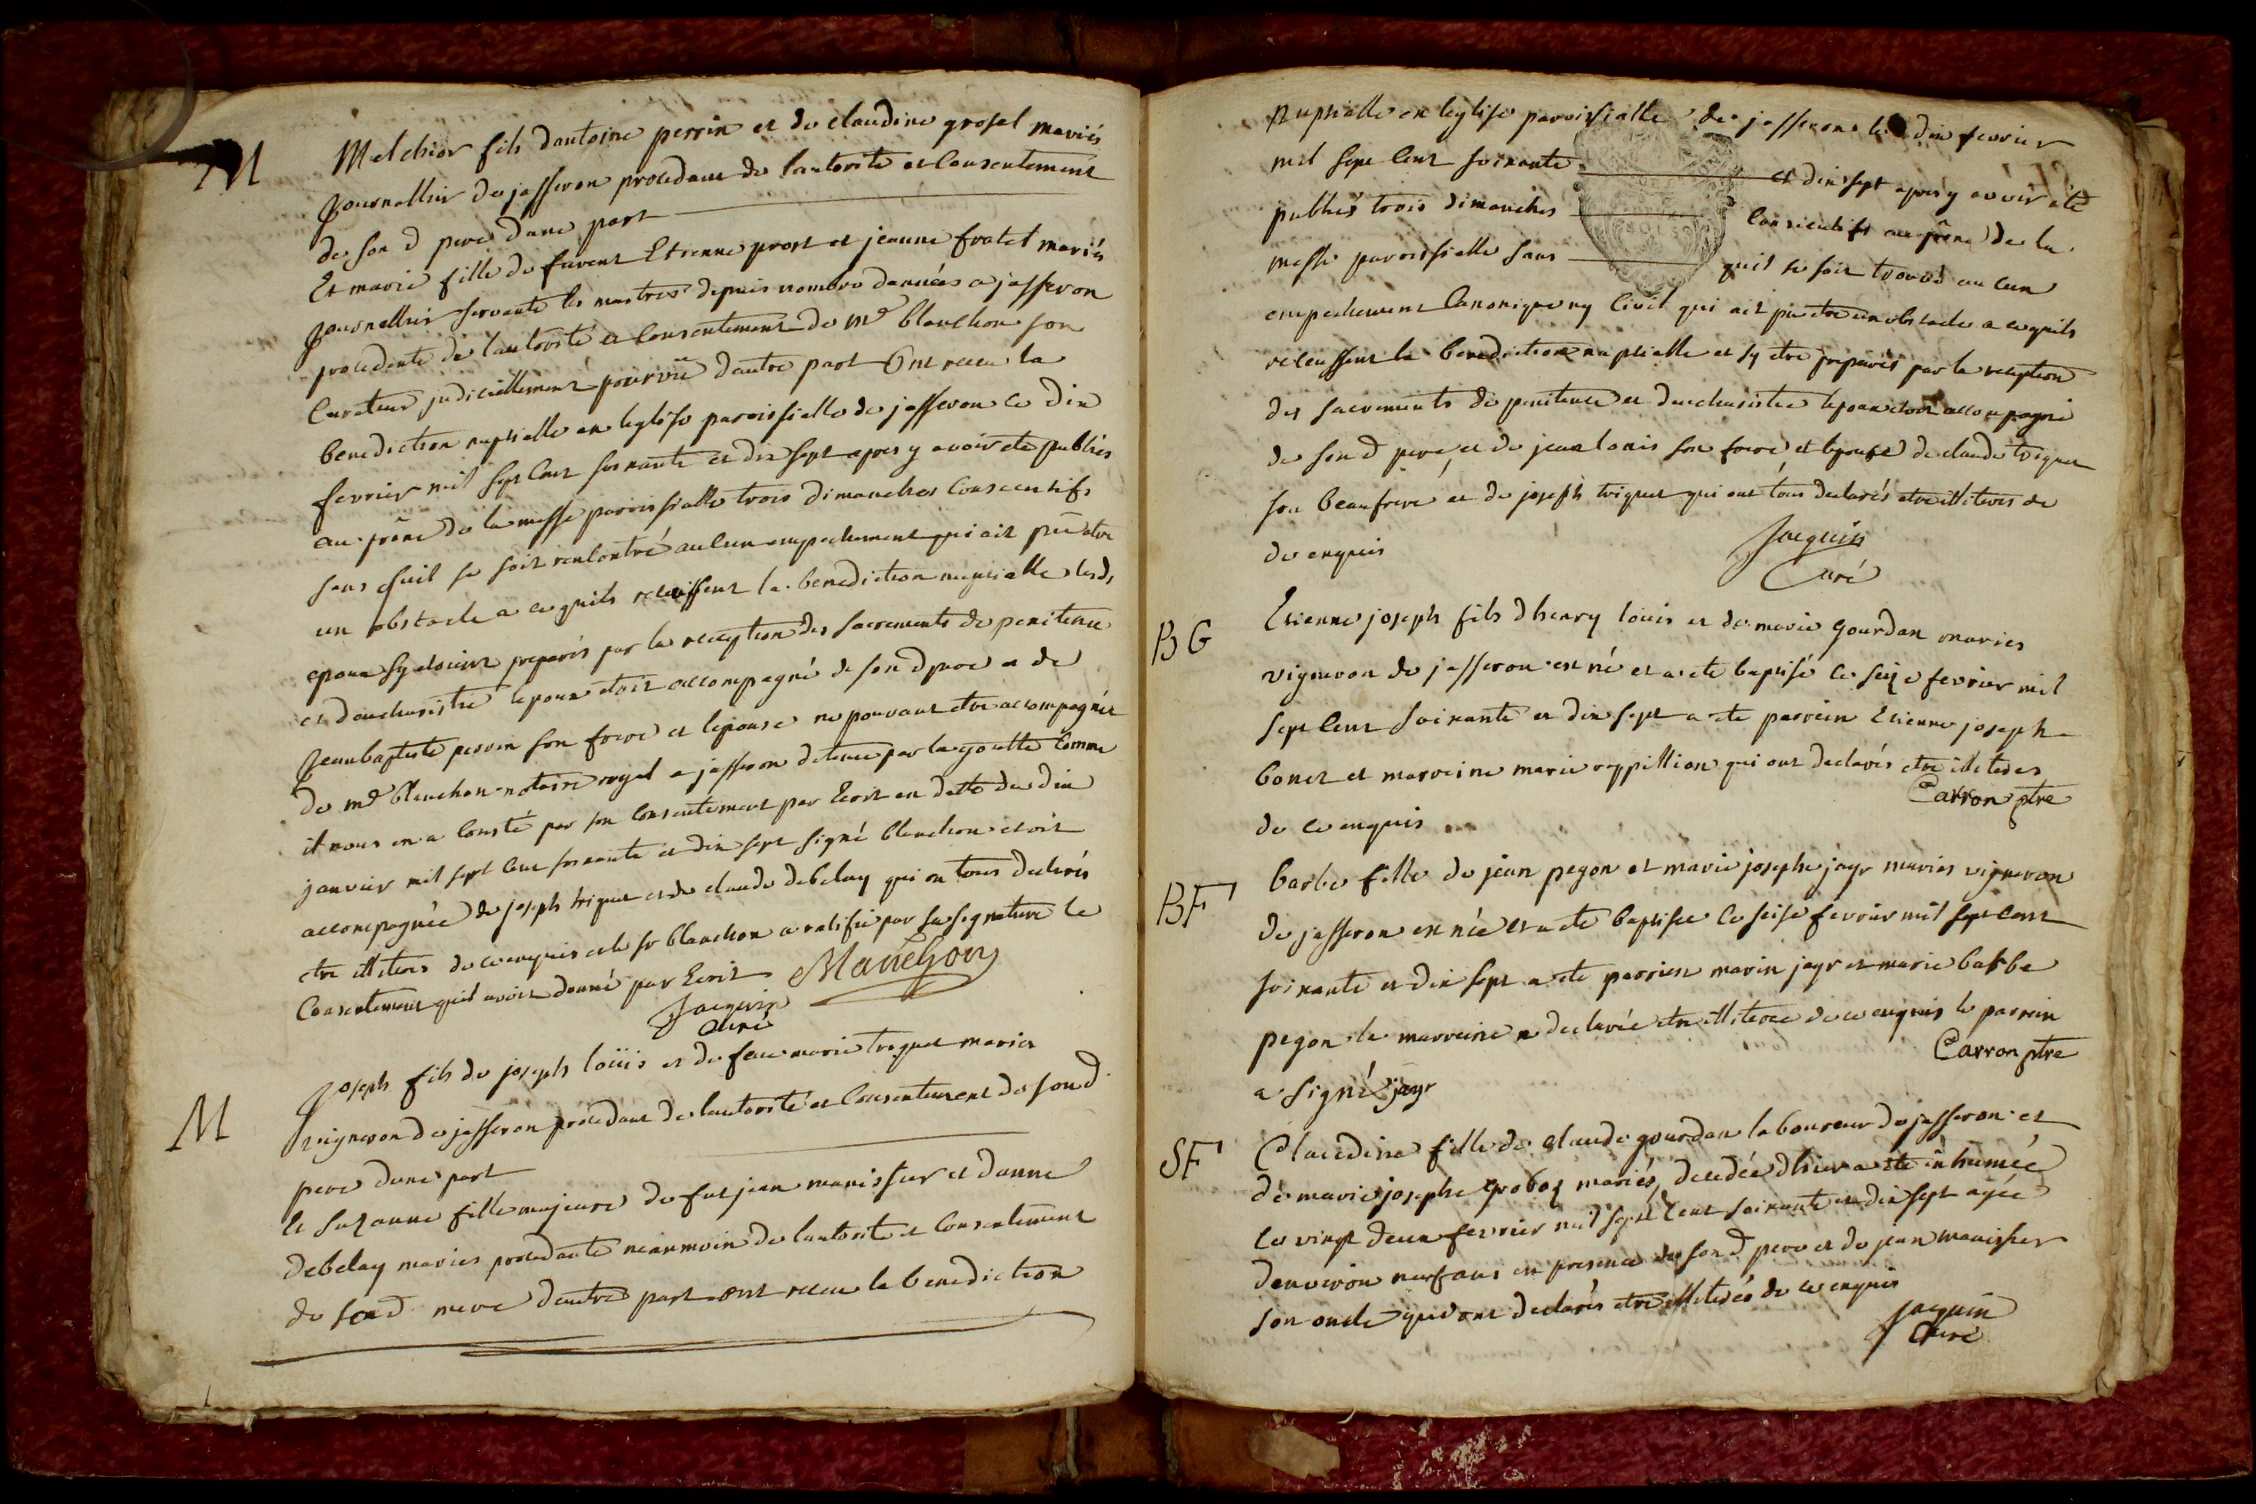 M
Melchior fils dantoine perrin et de claudine grosel mariés
Journallier de jasseron procedant de lautorité et consentement
de son d pere dune part
Et marie fille de furent Etienne prost et jeanne fratel mariés
Journallier servante les maitres depuis nombre dannées a jasseron
procedante de lautorité et consentement de me blanchon son
Curateur judiciellement pourvü dautre part Ont receu la
benediction nuptialle en leglise paroissialle de jasseron le dix
fevrier mil sept cent soixante et dix sept apres y avoir eté publiés
au prône de la messe paroissialle trois dimanches consecutifs
sans quil se soit rencontré aucun empechement qui ait pu etre
un obstacle a ce quils receussent la benediction nuptialle lesds
epoux sy etoient preparés par la reception des sacrements de penitence
et deucharistie lepoux etoit accompagné de son d pere et de
Jeanbaptiste perrin son frere et lepouse ne pouvant etre accompagnée
de me blanchon notaire royal a jasseron detenu par la goutte comme
il nous en a consté par son consentement par Ecrit en datte du dix
janvier mil sept cent soixante et dix sept signé blanchon etoit
accompagnée de joseph triquet et de claude debelay qui on tous declarés
etre illiteres de ce enquis et le sr blanchon a ratifié par sa signature le
Consentement quil avoit donné par Ecrit Blanchon
Jacquin
Curé
M
Joseph fils de joseph loüis et de feue marie triquet mariés
vigneron de jasseron procedant de lautorité et consentement de son d
pere dune part
Et suzanne fille majeure de fut jean manissier et danne
debelay mariés procedante neanmoin de lautorité et consentement
de sa d mere dautre part ont receu la benediction
nuptialle en leglise paroissialle de jasseron le dix fevrier
mil sept cent soixante et dix sept apres y avoir eté
publiés trois dimanches consecutifs au prône de la
messe paroissialle sans quil se soit trouvé aucun
empechement canonique ny civil qui ait pu etre un obstacle a ce quils
receussent la benediction nuptialle et sy etre preparés par la reception
des sacrements de penitence et deucharistie lepoux etoit accompagné
de son d pere et de jean louis son frere et lepouse de claude triquet
son beaufrere et de joseph triquet qui ont tous declarés etre illiteres de
ce enquis
Jacquin
Curé
BG
Etienne joseph fils dhenry louis et de marie gourdan mariés
vigneron de jasseron est né et a eté baptisé le seize fevrier mil
sept cent soixante et dix sept a eté parrein Etienne joseph
bonet et marreine marie rappillion qui ont declarés etre illiteres
de ce enquis
Carron ptre
BF
barbe fille de jean pegon et marie josephe jayr mariés vigneron
de jasseron est née et a eté baptisée le seise fevrier mil sept cent
soixante et dix sept a eté parrien marin jayr et marie barbe
pegon la marreine a declarée etre illiterée de ce enquis le parrein
a signé jayr
Carron ptre
SF
Claudine fille de claude gourdan laboureur de jasseron et
de marie josephe groboz mariés, decedée dhier a eté inhumée
le vingt deux fevrier mil sept cent soixante et dix sept agée
denviron neuf ans en presence de son d pere et de jean manissier
son oncle qui ont declarés etre illiterés de ce enquis
Jacquin
Curé